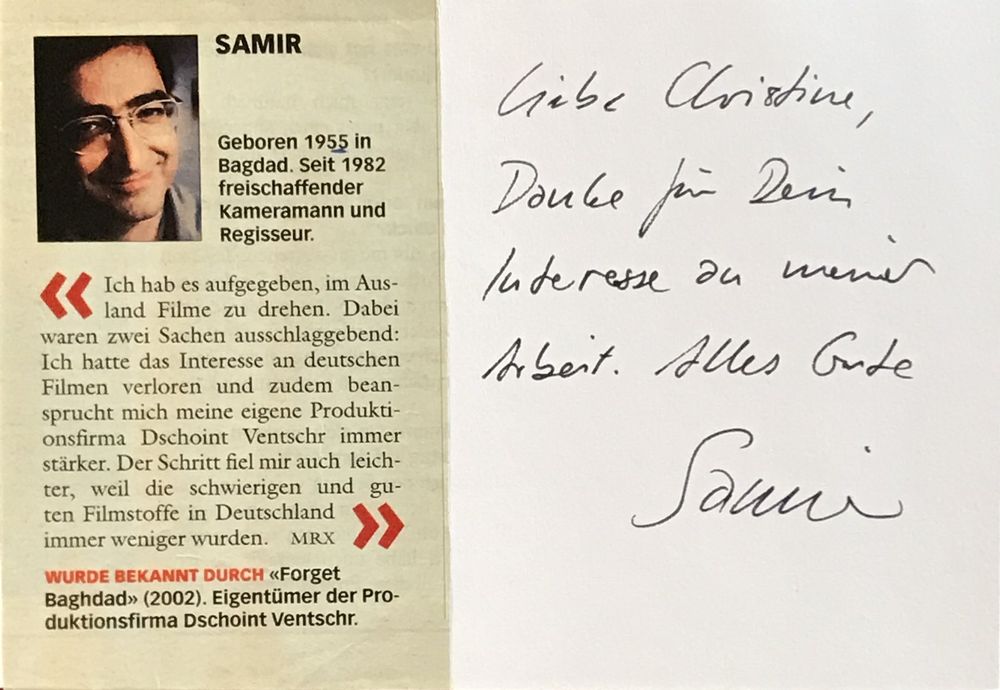 SAMIR
Geboren 1955 in
Bagdad. Seit 1982
freischaffender
Kameramann und
Regisseur.
« Ich hab es aufgegeben, im Aus-
land Filme zu drehen. Dabei
waren zwei Sachen ausschlaggebend:
Ich hatte das Interesse an deutschen
Filmen verloren und zudem bean-
sprucht mich meine eigene Produkti-
onsfirma Dschoint Ventschr immer
stärker. Der Schritt fiel mir auch leich-
ter, weil die schwierigen und gu-
ten Filmstoffe in Deutschland
immer weniger wurden. MRX »
WURDE BEKANNT DURCH «Forget
Baghdad» (2002). Eigentümer der Pro-
duktionsfirma Dschoint Ventschr.
Liebe Christine,
Danke für Dein
Interesse an meiner
Arbeit. Alles Gute
Samir